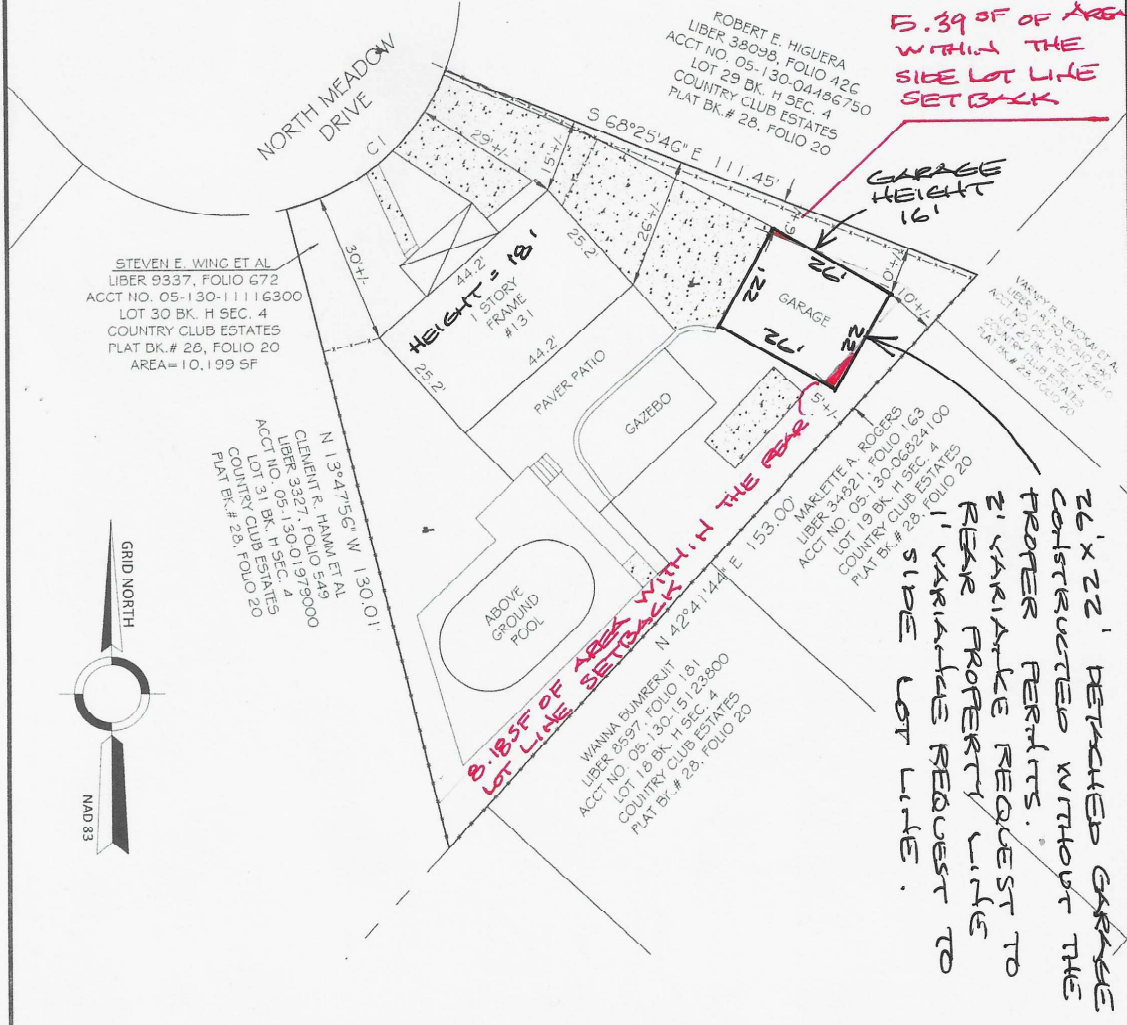 NORTH MEADOW
DRIVE
C1
ROBERT E. HIGUERA
LIBER 38098, FOLIO 426
ACCT NO. 05-130-04486750
LOT 29 BK. H SEC. 4
COUNTRY CLUB ESTATES
PLAT BK.# 28, FOLIO 20
5.39 SF OF AREA
WITHIN THE
SIDE LOT LINE
SETBACK
S 68°25'46" E 111.45'
GARAGE
HEIGHT
16'
29'+/-
15'+/-
26'+/-
6'+/-
10'+/-
10'+/-
STEVEN E. WING ET AL
LIBER 9337, FOLIO 672
ACCT NO. 05-130-11116300
LOT 30 BK. H SEC. 4
COUNTRY CLUB ESTATES
PLAT BK.# 28, FOLIO 20
AREA=10,199 SF
30'+/-
44.2'
25.2'
HEIGHT = 18'
1 STORY
FRAME
#131
44.2'
25.2'
26'
22'
GARAGE
22'
26'
5'+/-
PAVER PATIO
GAZEBO
LOT 60 BK. H SEC. 4
COUNTRY CLUB ESTATES
PLAT BK.# 28, FOLIO 20
MARLETTE A. ROGERS
LIBER 34821, FOLIO 163
ACCT NO. 05-130-06824100
LOT 19 BK. H SEC. 4
COUNTRY CLUB ESTATES
PLAT BK.# 28, FOLIO 20
N 13°47'56" W 130.01'
CLEMENT R. HAMM ET AL
LIBER 3327, FOLIO 549
ACCT NO. 05-130-01979000
LOT 31 BK. H SEC. 4
COUNTRY CLUB ESTATES
PLAT BK.# 28, FOLIO 20
ABOVE
GROUND
POOL
8.18 SF OF AREA WITHIN THE REAR
LOT LINE SETBACK
N 42°41'44" E 153.00'
WANNA BUMRERJIT
LIBER 8597, FOLIO 181
ACCT NO. 05-130-15123800
LOT 18 BK. H SEC. 4
COUNTRY CLUB ESTATES
PLAT BK.# 28, FOLIO 20
26' X 22' DETACHED GARAGE
CONSTRUCTED WITHOUT THE
PROPER PERMITS.
2' VARIANCE REQUEST TO
REAR PROPERTY LINE
1' VARIANCE REQUEST TO
SIDE LOT LINE.
GRID NORTH
NAD 83